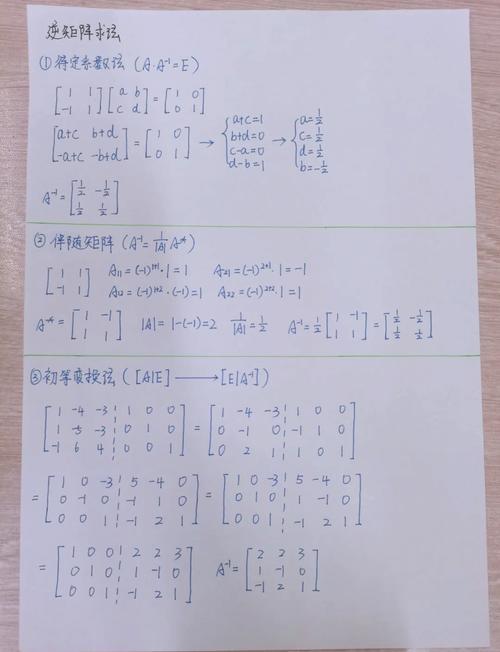 逆矩阵求法
① 待定系数法 (A·A⁻¹=E)
[1 1; -1 1] [a b; c d] = [1 0; 0 1]
[a+c b+d; -a+c -b+d] = [1 0; 0 1] → {a+c=1 b+d=0 c-a=0 d-b=1 → {a=1/2 c=1/2 d=1/2 b=-1/2
A⁻¹=[1/2 -1/2; 1/2 1/2]
② 伴随矩阵 (A⁻¹=1/|A| A*)
[1 1; -1 1] A₁₁=(-1)¹⁺¹·1=1 A₂₁=(-1)²⁺¹·1=-1
A₁₂=(-1)¹⁺²·(-1)=1 A₂₂=(-1)²⁺²·1=1
A*=[1 -1; 1 1] |A|=1-(-1)=2 1/|A|=1/2 A⁻¹=1/2[1 -1; 1 1]=[1/2 -1/2; 1/2 1/2]
③ 初等变换法 ([A|E] → [E|A⁻¹])
[1 -4 -3 ¦ 1 0 0; 1 -5 -3 ¦ 0 1 0; -1 6 4 ¦ 0 0 1] = [1 -4 -3 ¦ 1 0 0; 0 -1 0 ¦ -1 1 0; 0 2 1 ¦ 1 0 1]
= [1 0 -3 ¦ 5 -4 0; 0 -1 0 ¦ -1 1 0; 0 0 1 ¦ -1 2 1] = [1 0 -3 ¦ 5 -4 0; 0 1 0 ¦ 1 -1 0; 0 0 1 ¦ -1 2 1]
= [1 0 0 ¦ 2 2 3; 0 1 0 ¦ 1 -1 0; 0 0 1 ¦ -1 2 1] A⁻¹=[2 2 3; 1 -1 0; -1 2 1]